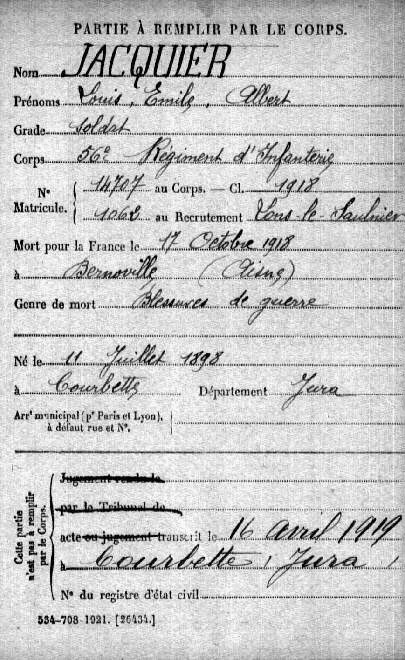 PARTIE À REMPLIR PAR LE CORPS.
Nom JACQUIER
Prénoms Louis, Emile, Albert
Grade Soldat
Corps 56e Régiment d'Infanterie
N° Matricule. 14707 au Corps. — Cl. 1918
1062 au Recrutement Lons-le-Saulnier
Mort pour la France le 17 Octobre 1918
à Bernoville (Aisne)
Genre de mort Blessures de guerre
Né le 11 Juillet 1898
à Courbette Département Jura
Arrt municipal (pr Paris et Lyon),
à défaut rue et N°.
Cette partie n'est pas à remplir par le Corps.
Jugement rendu le
par le Tribunal de
acte ou jugement transcrit le 16 avril 1919
à Courbette, Jura,
N° du registre d'état civil
534-708-1921. [26434.]